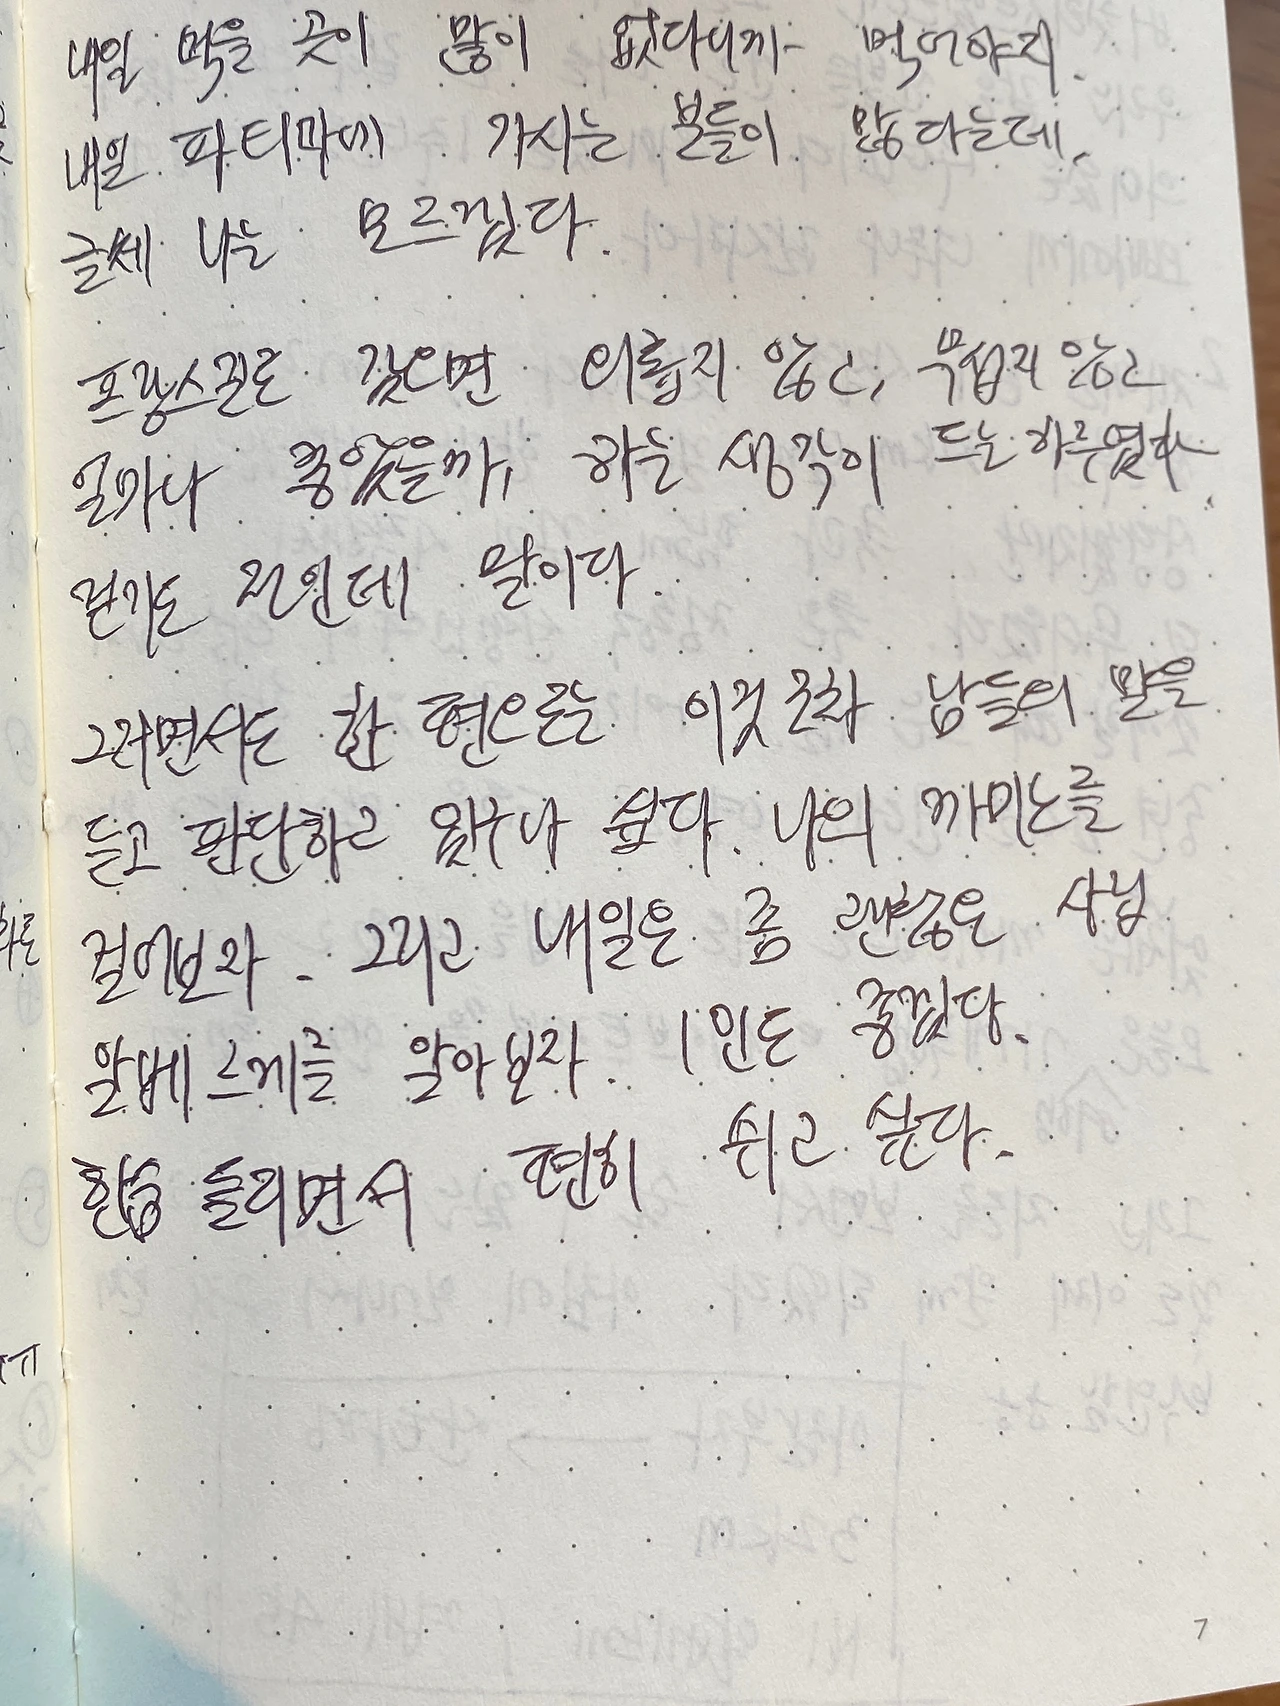 내일 먹을 곳이 많이 없다니까 먹어야지.
내일 파티마에 가시는 분들이 많다는데,
글쎄 나는 모르겠다.
프랑스길로 갔으면 외롭지 않고, 무섭지 않고
얼마나 좋았을까, 하는 생각이 드는 하루였다.
걷기도 전인데 말이다.
그러면서도 한 편으로는 이것 조차 남들의 말을
듣고 판단하고 있구나 싶다. 나의 까미노를
걸어보자. 그리고 내일은 좀 괜찮은 사립
알베르게를 알아보자. 1인도 좋겠다.
한숨 돌리면서 편히 쉬고 싶다.
7